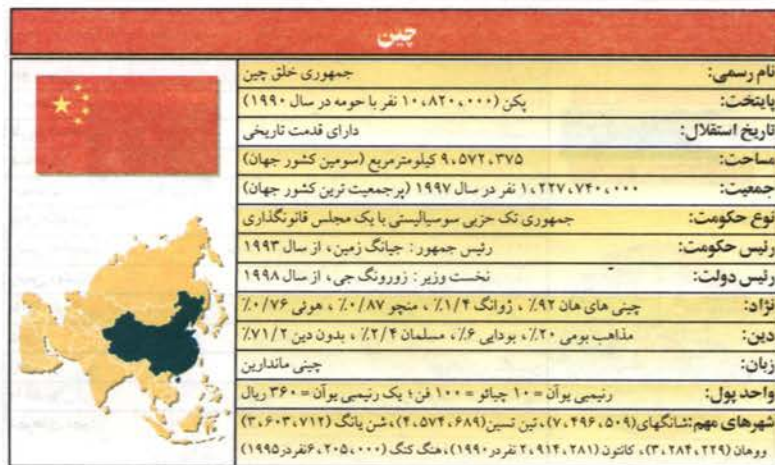 چین
نام رسمی: جمهوری خلق چین
پایتخت: پکن (۱۰،۸۲۰،۰۰۰ نفر با حومه در سال ۱۹۹۰)
تاریخ استقلال: دارای قدمت تاریخی
مساحت: ۹،۵۷۲،۳۷۵ کیلومترمربع (سومین کشور جهان)
جمعیت: ۱،۲۲۷،۷۴۰،۰۰۰ نفر در سال ۱۹۹۷ (پرجمعیت ترین کشور جهان)
نوع حکومت: جمهوری تک حزبی سوسیالیستی با یک مجلس قانونگذاری
رئیس حکومت: رئیس جمهور: جیانگ زمین، از سال ۱۹۹۳
رئیس دولت: نخست وزیر: زورونگ جی، از سال ۱۹۹۸
نژاد: چینی های هان ۹۲٪، ژوانگ ۱/۴٪، منچو ۰/۸۷٪، هوئی ۰/۷۶٪
دین: مذاهب بومی ۲۰٪، بودایی ۶٪، مسلمان ۲/۴٪، بدون دین ۷۱/۲٪
زبان: چینی ماندارین
واحد پول: رنیمبی یوآن = ۱۰ چیائو = ۱۰۰ فن؛ یک رنیمبی یوآن = ۳۶۰ ریال
شهرهای مهم: شانگهای (۷،۴۹۶،۵۰۹)، تین تسین (۴،۵۷۴،۶۸۹)، شن یانگ (۳،۶۰۳،۷۱۲)
ووهان (۳،۲۸۴،۲۲۹)، کانتون (۲،۹۱۴،۲۸۱ نفر در ۱۹۹۰)، هنگ کنگ (۶،۲۰۵،۰۰۰ نفر در ۱۹۹۵)